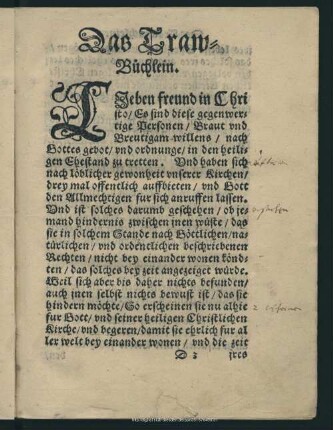 Das Traw-
Büchlein.
LIeben freund in Chri
sto/ Es sind diese gegenwer-
tige Personen/ Braut vnd
Breutigam willens/ nach
Gottes gebot/ vnd ordnunge/ in den heili-
gen Ehestand zu tretten. Vnd haben sich
nach löblicher gewonheit vnserer Kirchen/
drey mal offentlich auffbieten/ vnd Gott
den Allmechtigen für sich anruffen lassen.
Vnd ist solches darumb geschehen/ ob je-
mand hindernis zwischen jnen wüste/ das
sie in solchem Stande nach Göttlichen/ na
türlichen/ vnd ordentlichen beschriebenen
Rechten/ nicht bey einander wonen könd-
ten/ das solches bey zeit angezeiget würde.
Weil sich aber bis daher nichts befunden/
auch jnen selbst nichts bewust ist/ das sie
hindern möchte/ So erscheinen sie nu alhie
für Gott/ vnd seiner heiligen Christlichen
Kirche/ vnd begeren/ damit sie ehrlich für al
ler welt bey einander wonen/ vnd die zeit
D 2 jres